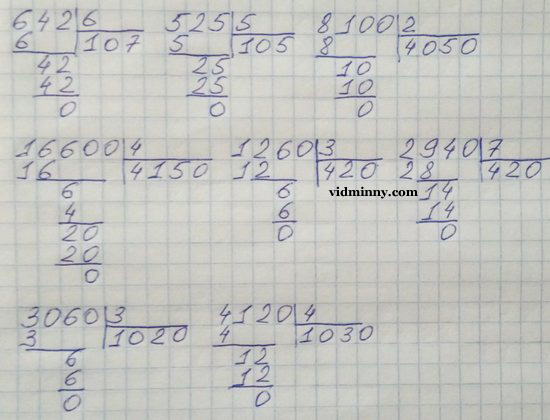 642 6 525 5 8100 2
6 107 5 105 8 4050
42 25 10
42 25 10
0 0 0
16600 4 1260 3 2940 7
16 4150 12 420 28 420
vidminny.com
6 6 14
4 6 14
20 0 0
20
0
3060 3 4120 4
3 1020 4 1030
6 12
6 12
0 0